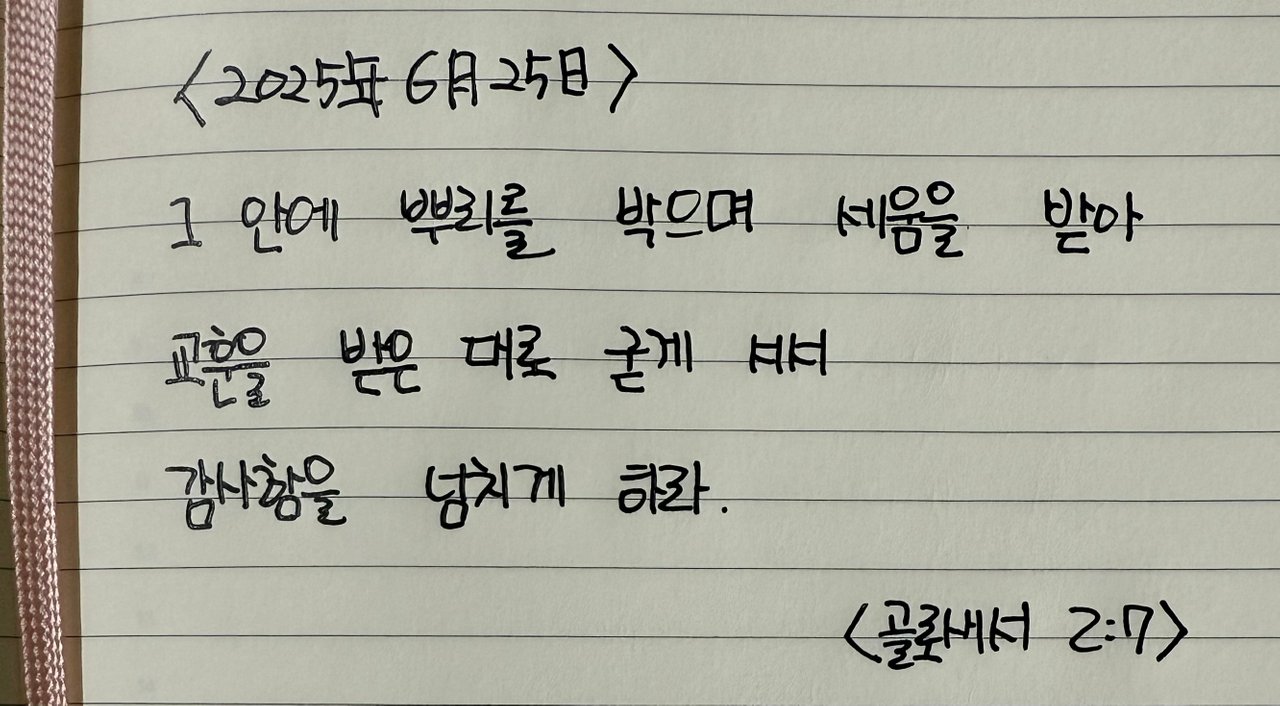 <2025年 6月 25日>
그 안에 뿌리를 박으며 세움을 받아
교훈을 받은 대로 굳게 서서
감사함을 넘치게 하라.
<골로새서 2:7>